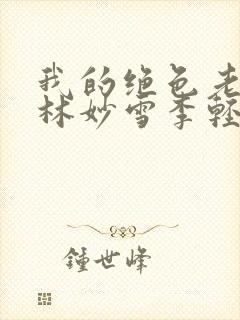 我的绝色老
林妙雪季轻
鍾世峰